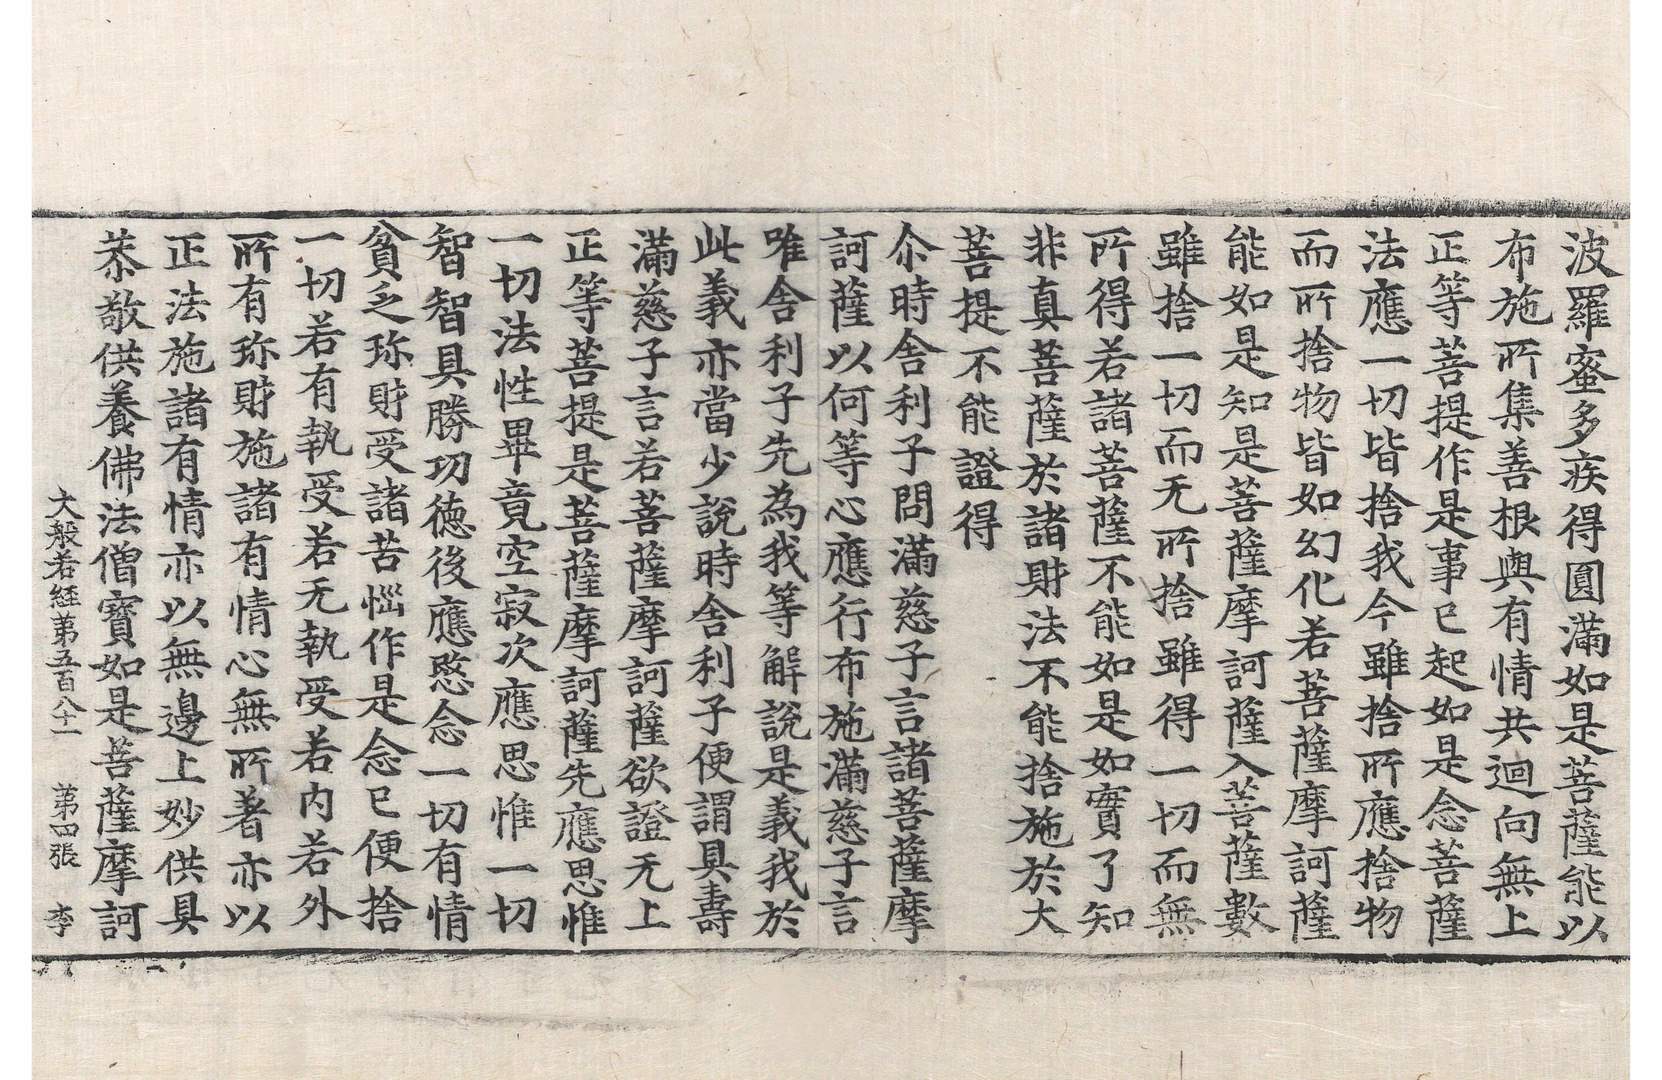 波羅蜜多疾得圓滿如是菩薩能以
布施所集善根與有情共迴向無上
正等菩提作是事已起如是念菩薩
法應一切皆捨我今雖捨所應捨物
而所捨物皆如幻化若菩薩摩訶薩
能如是知是菩薩摩訶薩入菩薩數
雖捨一切而无所捨雖得一切而無
所得若諸菩薩不能如是如實了知
非真菩薩於諸財法不能捨施於大
菩提不能證得
尒時舍利子問滿慈子言諸菩薩摩
訶薩以何等心應行布施滿慈子言
唯舍利子先為我等解說是義我於
此義亦當少說時舍利子便謂具壽
滿慈子言若菩薩摩訶薩欲證无上
正等菩提是菩薩摩訶薩先應思惟
一切法性畢竟空寂次應思惟一切
智智具勝功德後應愍念一切有情
貧乏珎財受諸苦惱作是念已便捨
一切若有執受若无執受若內若外
所有珎財施諸有情心無所著亦以
正法施諸有情亦以無邊上妙供具
恭敬供養佛法僧寶如是菩薩摩訶
大般若經第五百八十一 第四張 李